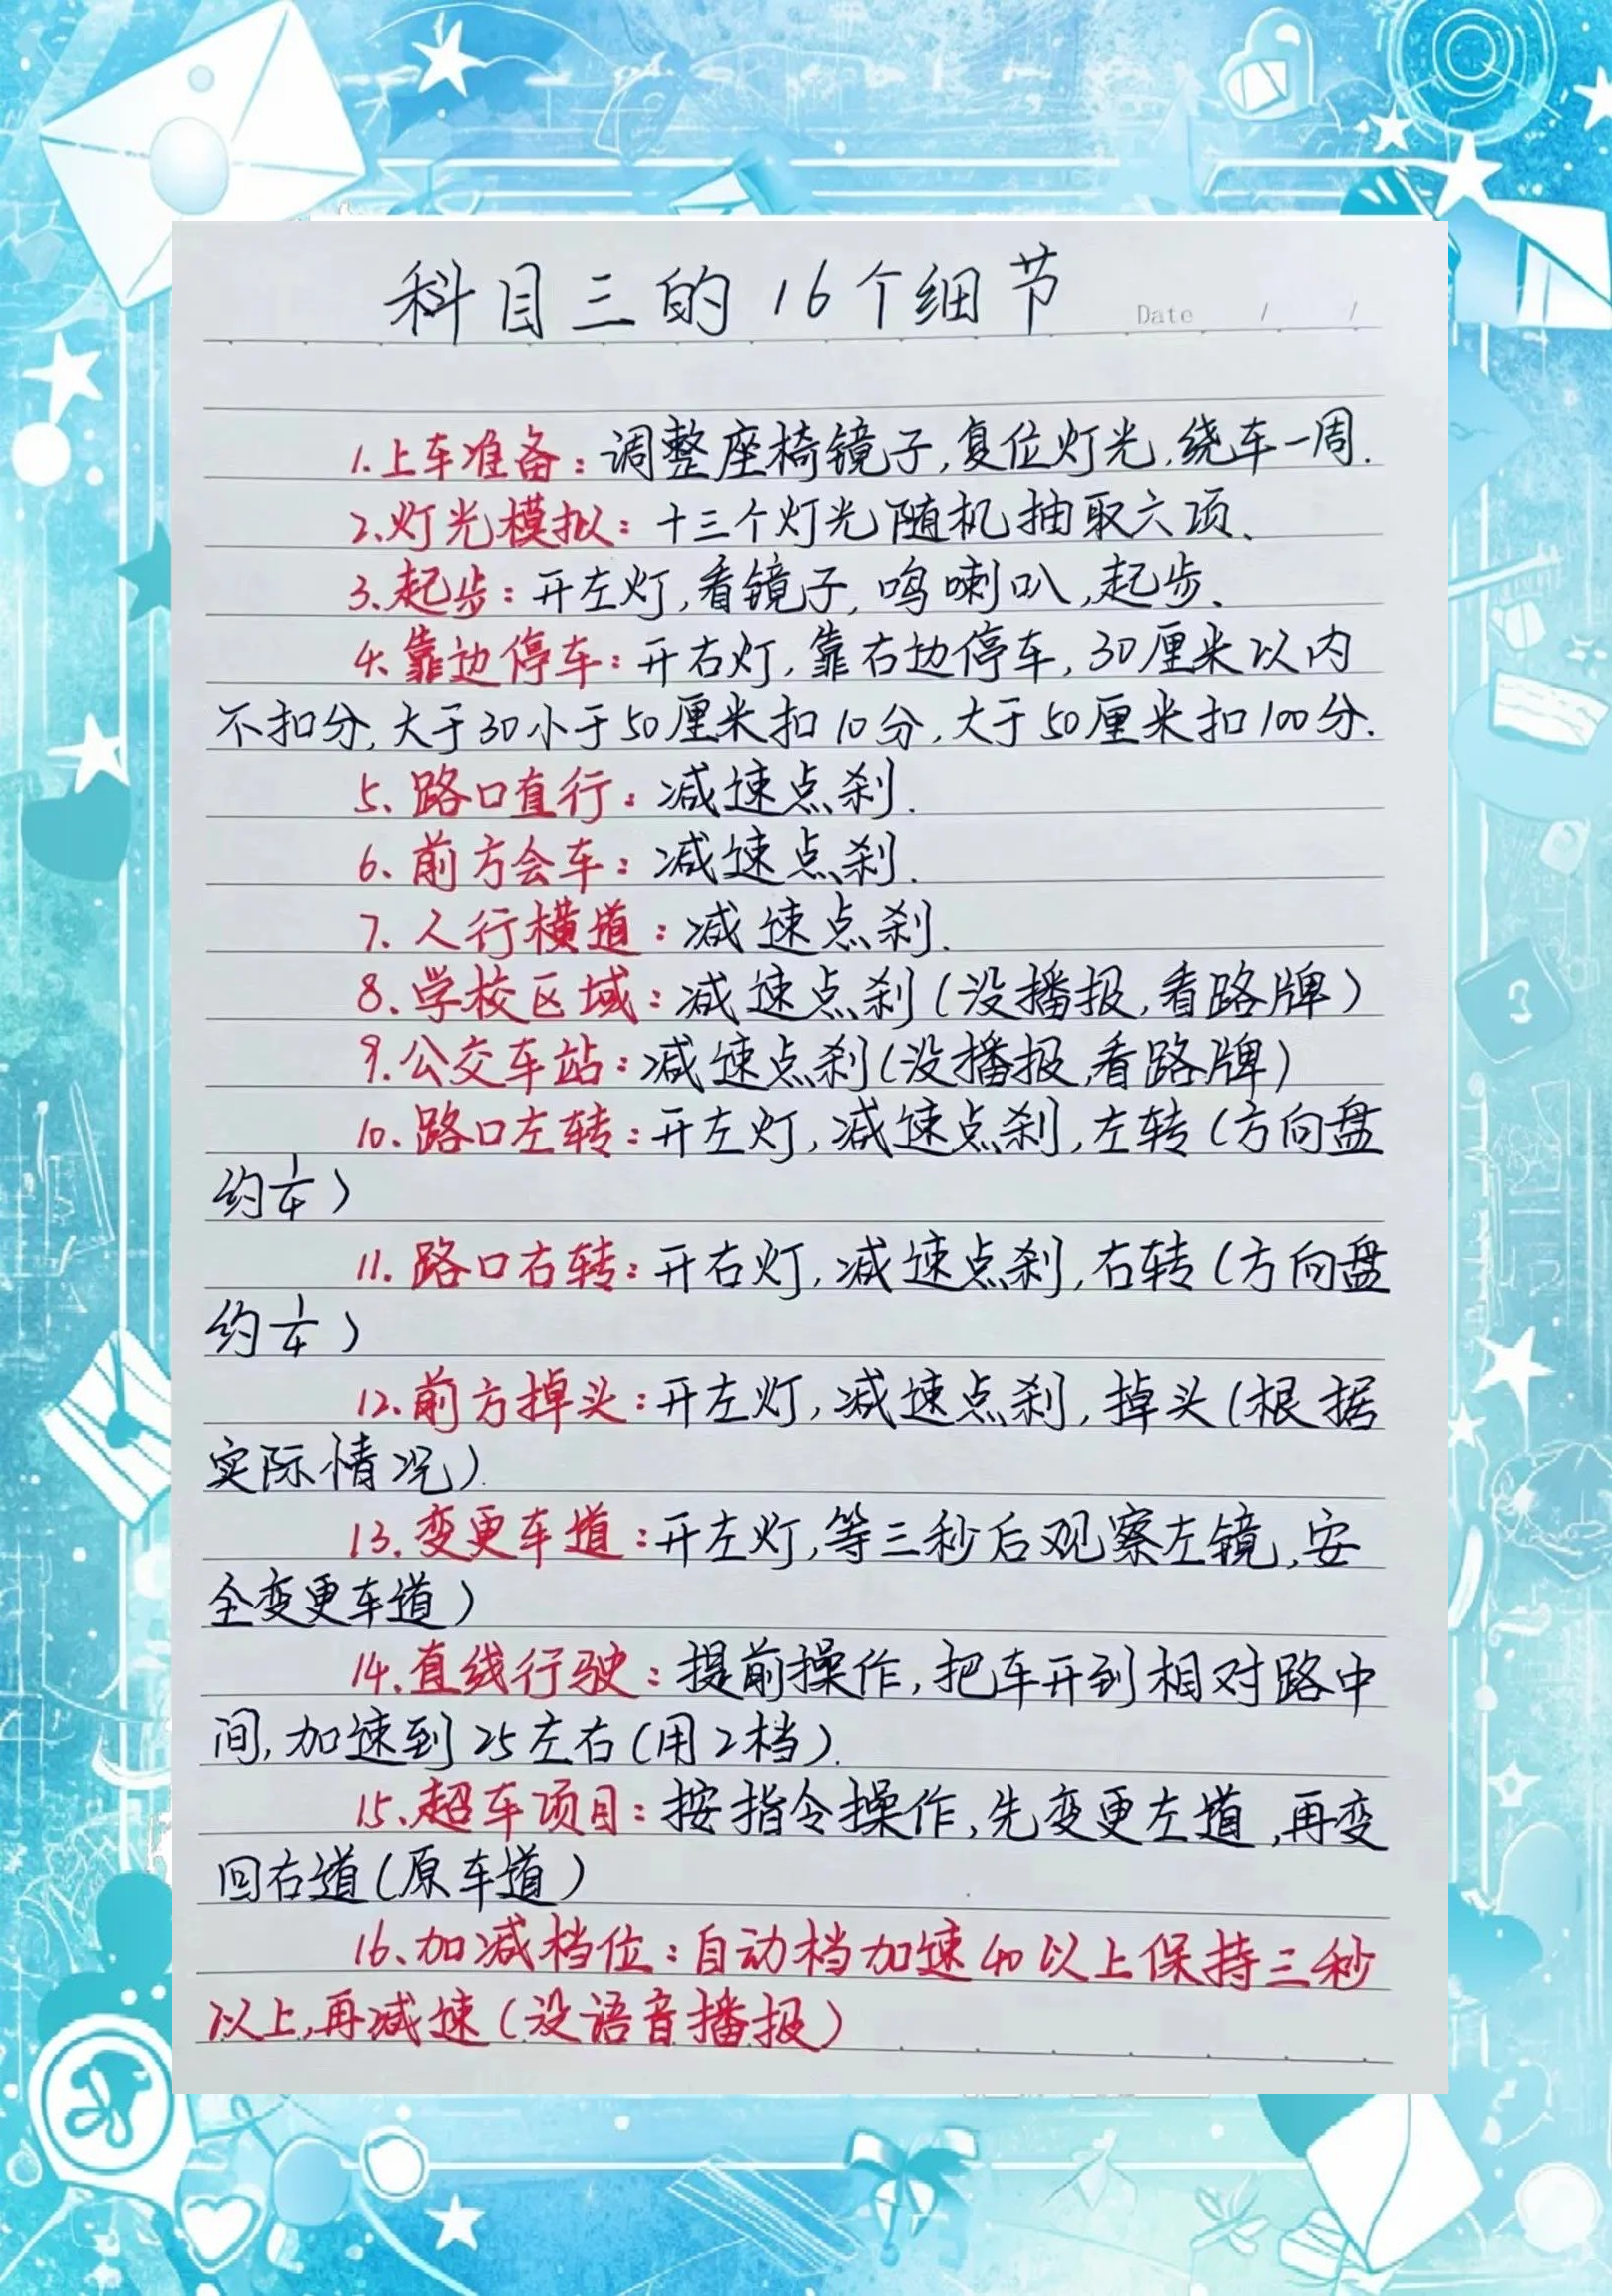 科目三的16个细节
Date / /
1.上车准备：调整座椅镜子,复位灯光,绕车一周.
2.灯光模拟：十三个灯光随机抽取六项、
3.起步：开左灯,看镜子,鸣喇叭,起步、
4.靠边停车：开右灯,靠右边停车,30厘米以内
不扣分,大于30小于50厘米扣10分,大于50厘米扣100分.
5、路口直行：减速点刹.
6、前方会车：减速点刹.
7、人行横道：减速点刹.
8.学校区域：减速点刹(没播报,看路牌)
9.公交车站：减速点刹(没播报,看路牌)
10.路口左转：开左灯,减速点刹,左转(方向盘
约1/4)
11.路口右转：开右灯,减速点刹,右转(方向盘
约1/4)
12.前方掉头：开左灯,减速点刹,掉头(根据
实际情况).
13.变更车道：开左灯,等三秒后观察左镜,安
全变更车道)
14.直线行驶：提前操作,把车开到相对路中
间,加速到25左右(用2档).
15.超车项目：按指令操作,先变更左道,再变
回右道(原车道)
16、加减档位：自动档加速40以上保持三秒
以上,再减速(没语音播报)